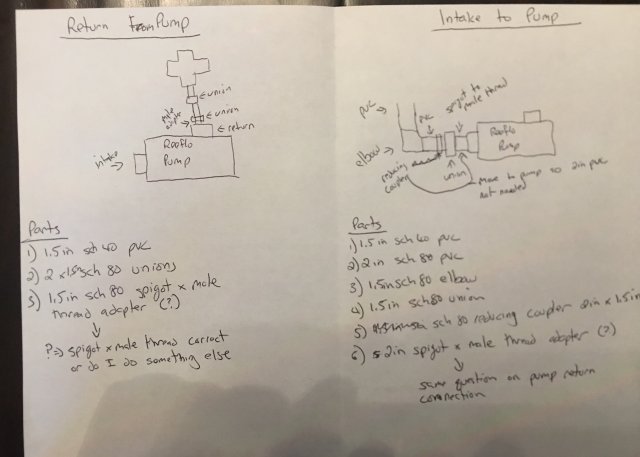 Return From Pump
union
male
adapter
union
return
intake
Reeflo
Pump
Parts
1) 1.5in sch 40 pvc
2) 2 x 1.5in sch 80 unions
3) 1.5in sch 80 spigot x male
thread adapter (?)
?=> spigot x male thread correct
or do I do something else
Intake to Pump
pvc
pvc
spigot to
male thread
elbow
reducing
coupler
union
Reeflo
Pump
move to pump so 2in pvc
not needed
Parts
1) 1.5in sch 40 pvc
2) 2in sch 80 pvc
3) 1.5in sch 80 elbow
4) 1.5in sch 80 union
5) sch 80 reducing coupler 2in x 1.5in
6) 2in spigot x male thread adapter (?)
same question on pump return
connection